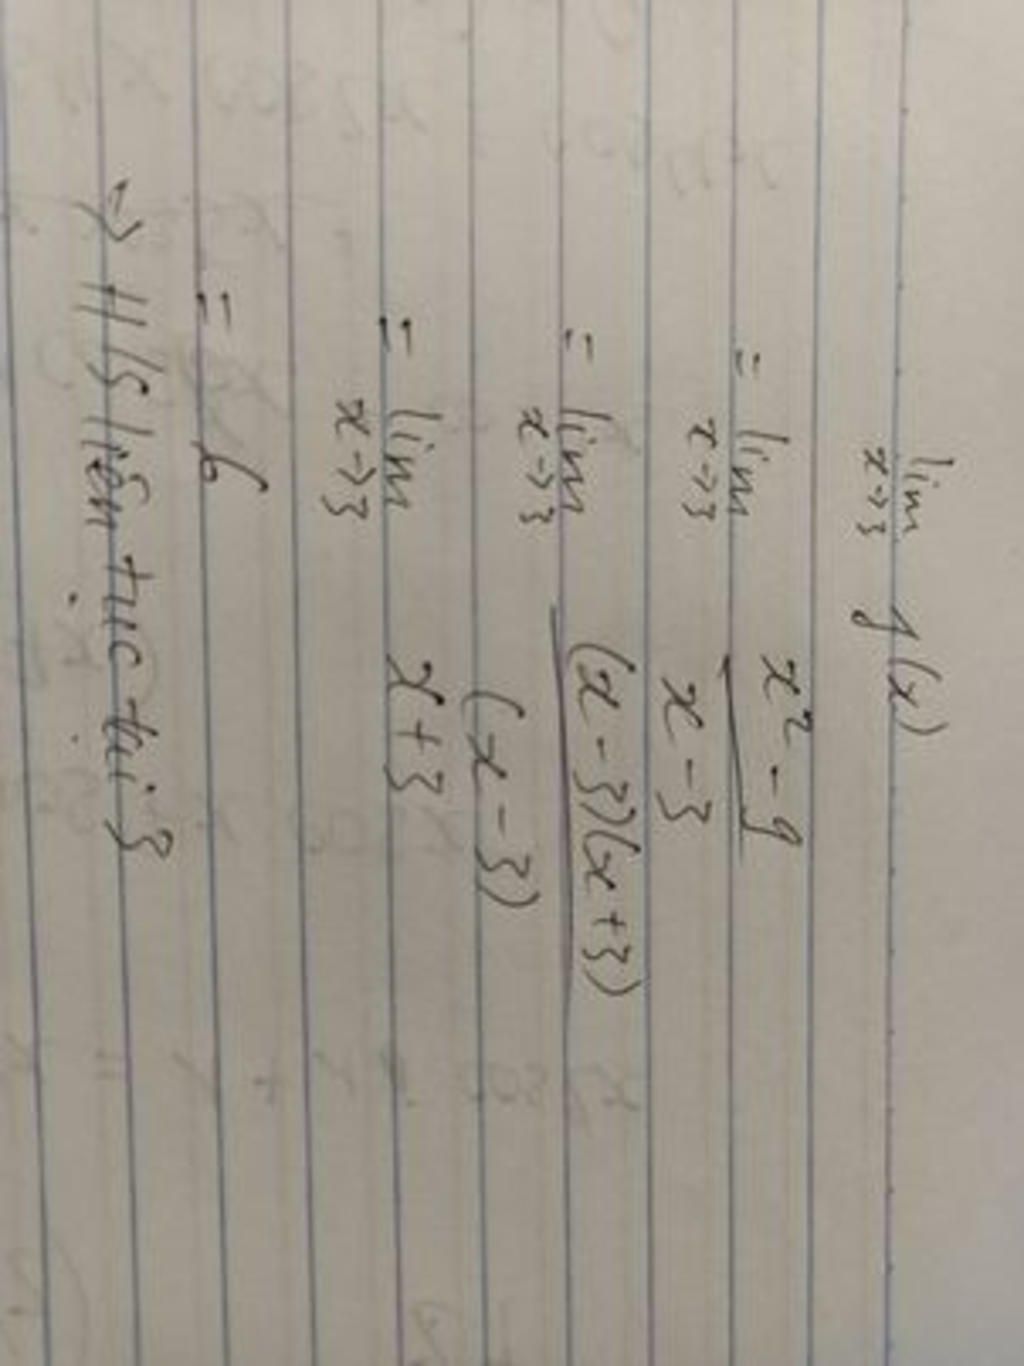 lim x→3 f(x)
= lim x→3 x² - 9 / x - 3
= lim x→3 (x - 3)(x + 3) / (x - 3)
= lim x→3 x + 3
= 6
=> H/S liên tục tại 3